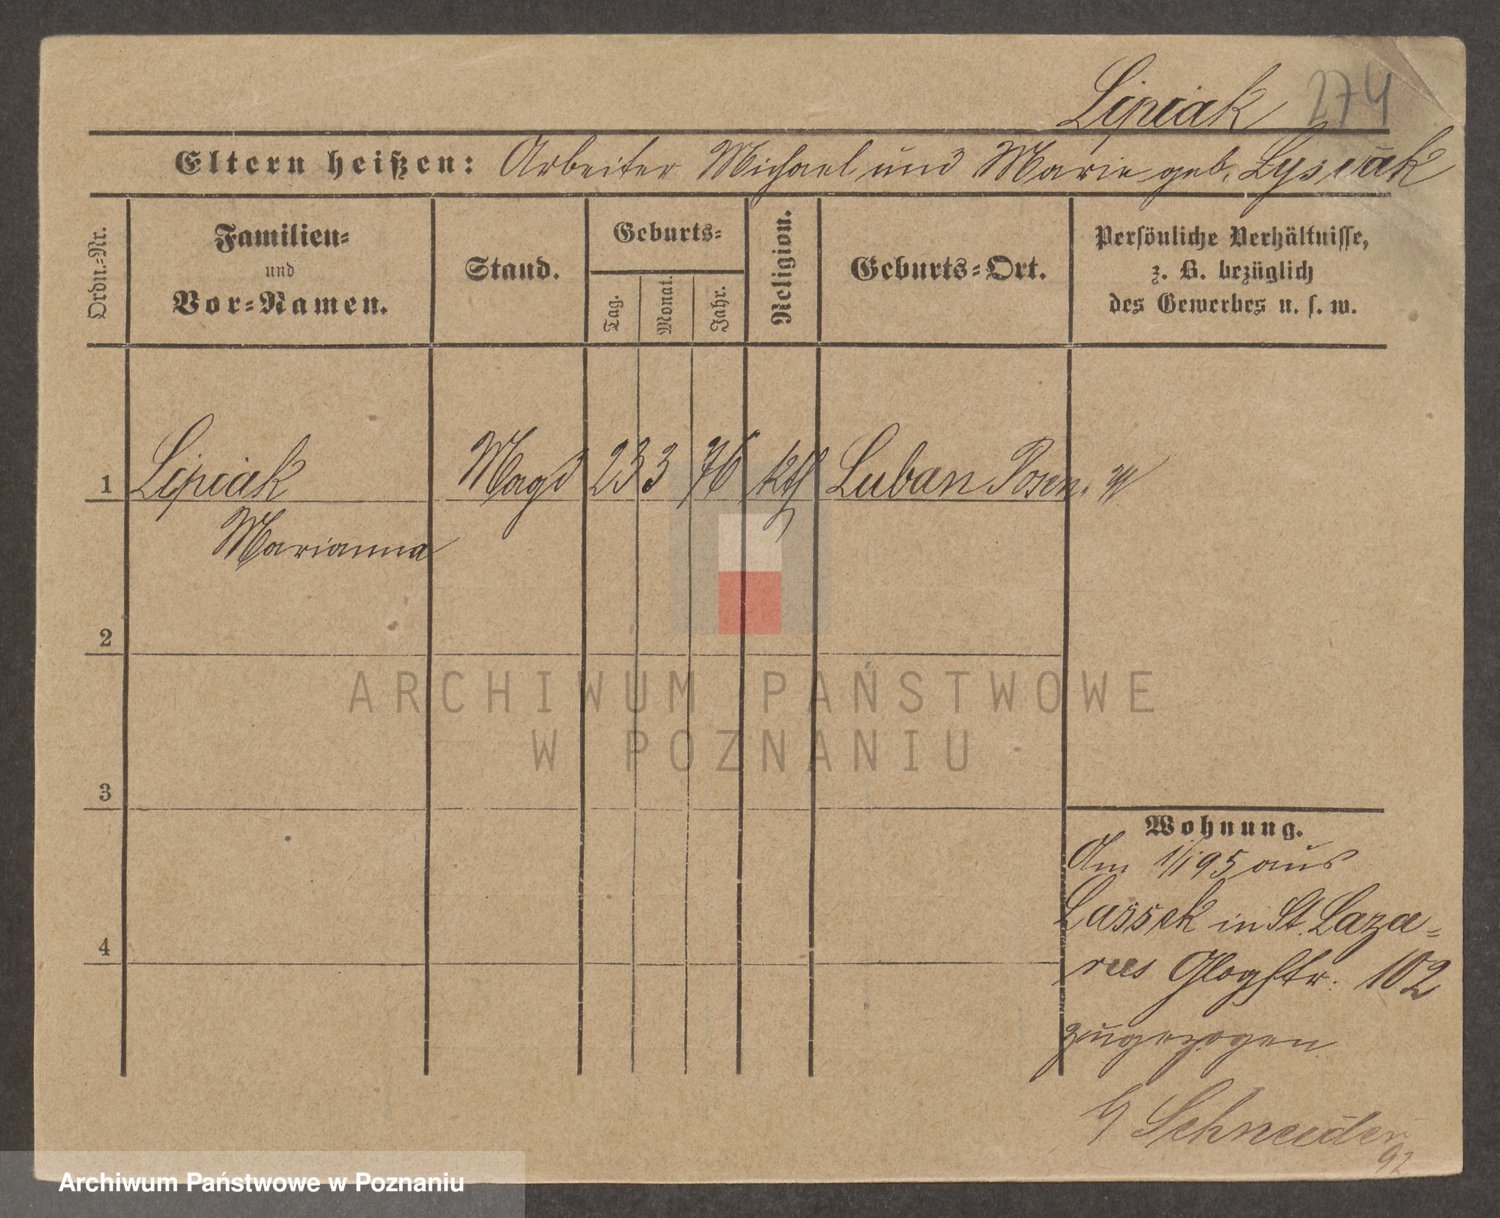 Lipiak 274
Eltern heißen: Arbeiter Michael und Marie geb. Lysiak
Ordn.-Nr.
Familien-
und
Vor-Namen.
Stand.
Geburts-
Tag.
Monat.
Jahr.
Religion.
Geburts-Ort.
Persönliche Verhältnisse,
z. B. bezüglich
des Gewerbes u. s. w.
1 Lipiak Magd 23 3 76 kth Luban Posen. W
Marianna
2
ARCHIWUM PAŃSTWOWE
W POZNANIU
3
Wohnung.
Am 1/1 95 aus
Lassek in St. Laza-
rus Glogstr. 102
zugezogen
4
b/ Schneider
92
Archiwum Państwowe w Poznaniu